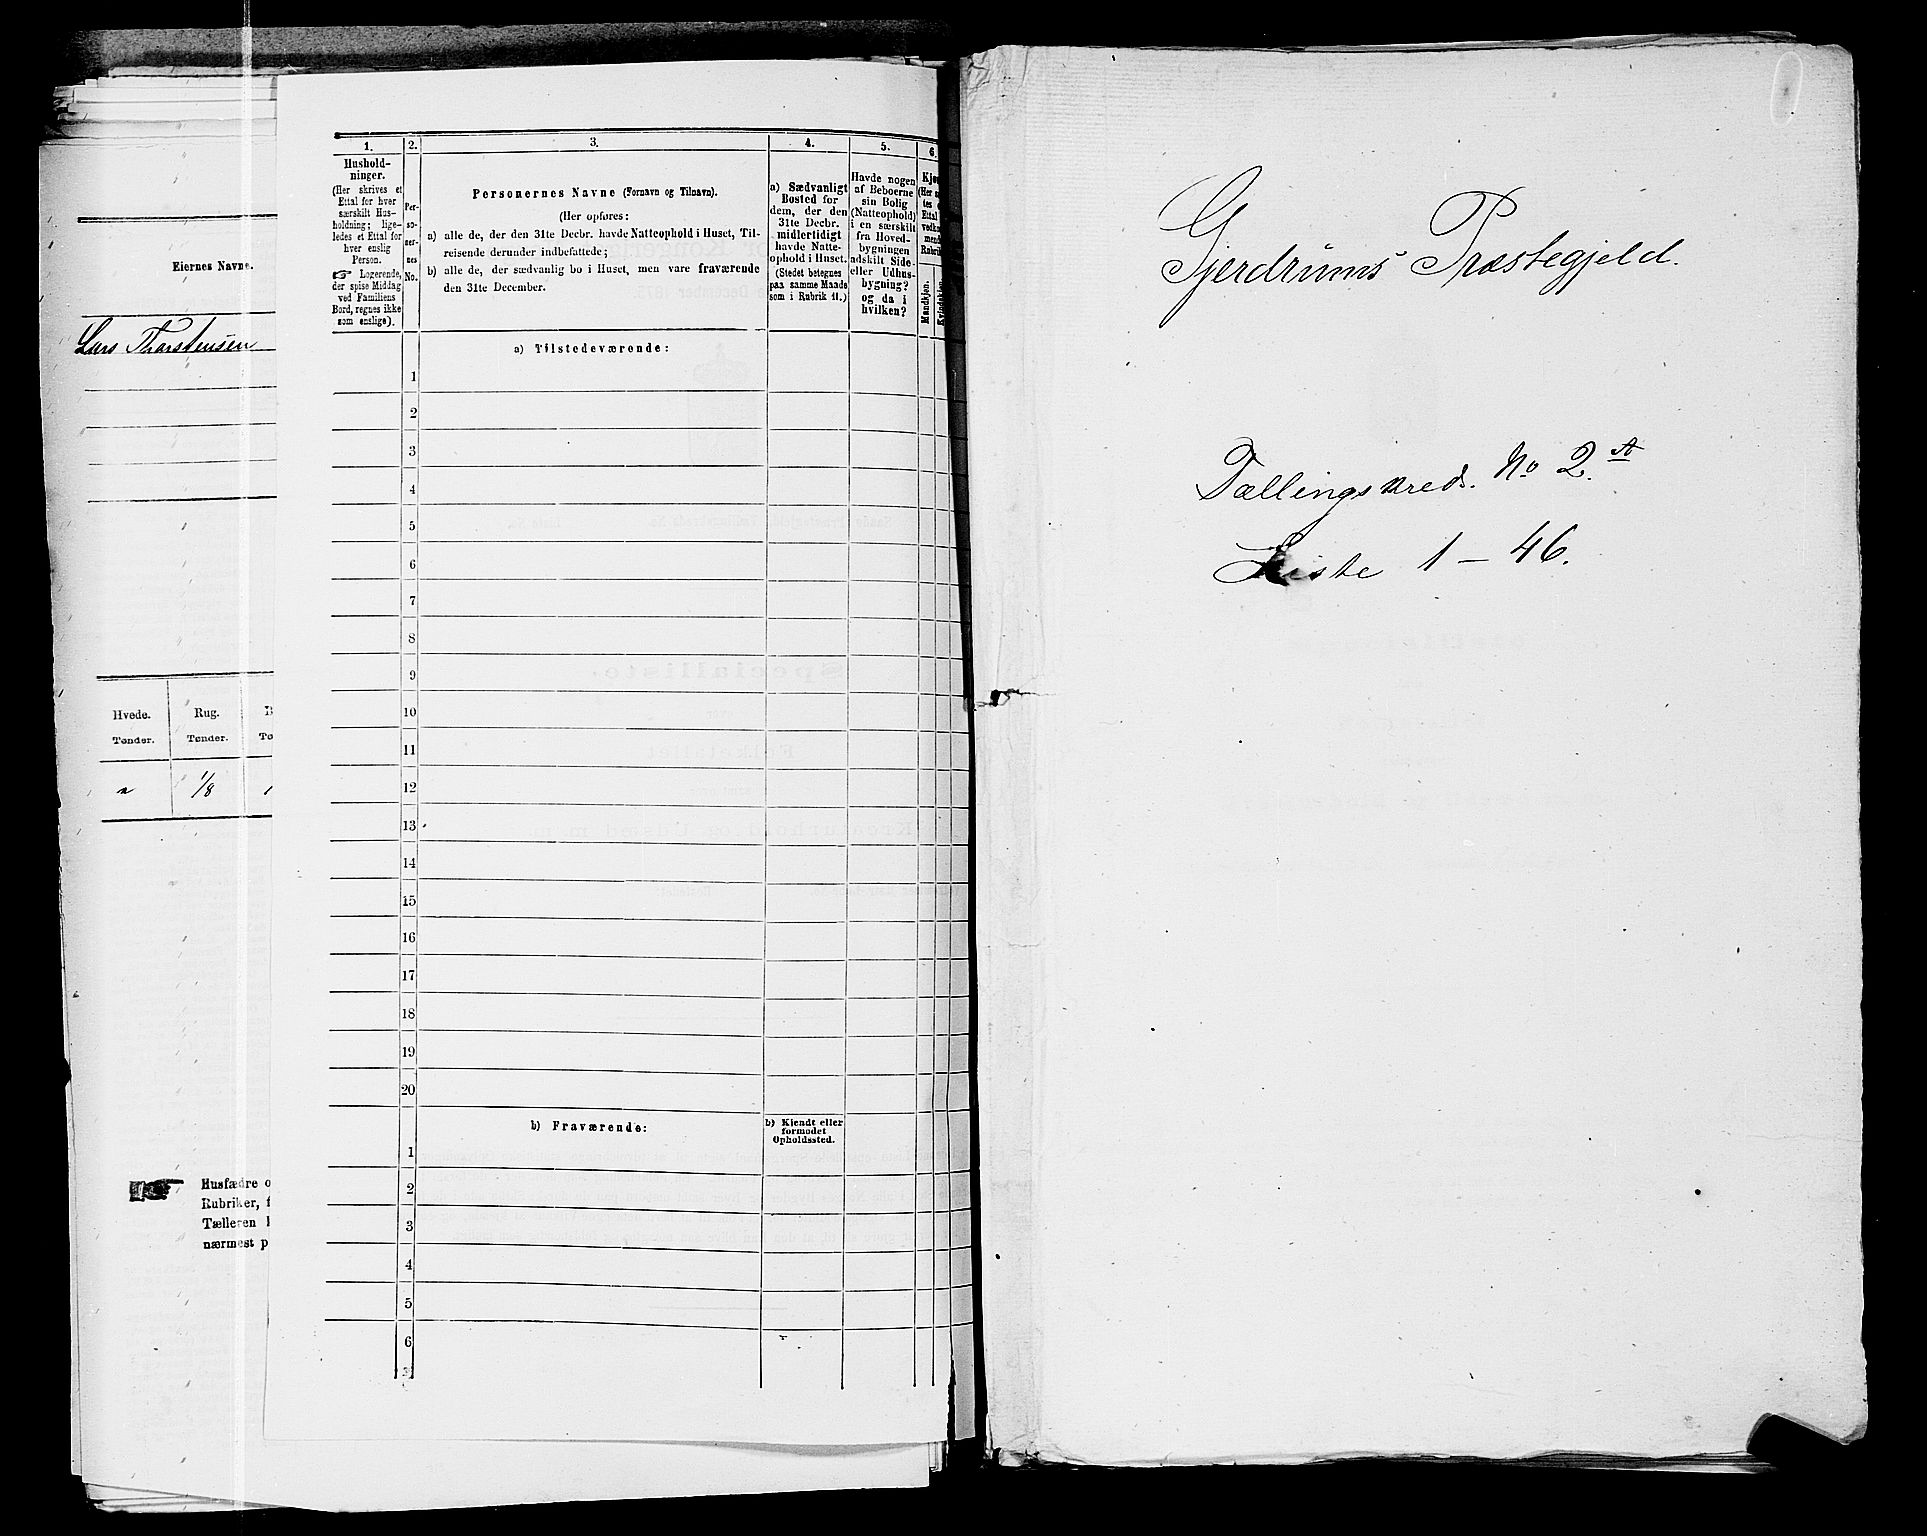 Eiernes Navne.
Lars Thorstensen
Hvede.
Tønder.
Rug.
Tønder.
B
Tø
"
1/8
1
Husfædre o
Rubriker, f
Tælleren
nærmest p
1.
Hushold-
ninger.
(Her skrives et
Ettal for hver
særskilt Hus-
holdning; lige-
ledes et Ettal for
hver enslig
Person.
☞ Logerende,
der spise Middag
ved Familiens
Bord, regnes ikke
som enslige).
2.
Per-
so-
ner-
nes
No.
3.
Personernes Navne (Fornavn og Tilnavn).
(Her opføres:
a) alle de, der den 31te Decbr. havde Natteophold i Huset, Til-
reisende derunder indbefattede;
b) alle de, der sædvanlig bo i Huset, men vare fraværende
den 31te December.
4.
a) Sædvanligt
Bosted for
dem, der den
31te Decbr.
midlertidigt
havde Natte-
ophold i Huset.
(Stedet betegnes
paa samme Maade
som i Rubrik 11.)
5.
Havde nogen
af Beboerne
sin Bolig
(Natteophold)
i en særskilt
fra Hoved-
bygningen
adskilt Side-
eller Udhus-
bygning?
og da i
hvilken?
6.
Kjø
(Her
tes
Ettal
vedk
men
Rubrik
Mandkjøn.
Kvindekjøn.
a) Tilstedeværende:
1
2
3
4
5
6
7
8
9
10
11
12
13
14
15
16
17
18
19
20
b) Fraværende:
b) Kjendt eller
formodet
Opholdssted.
1
2
3
4
5
6
Gjerdrums Præstegjeld.
Tællingskreds. No 2. A
Liste 1 – 46.